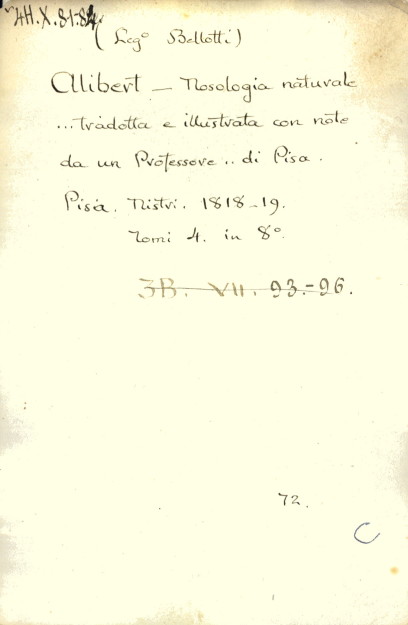 4H.X.81-84
(Leg° Bellotti)
Alibert — Nosologia naturale
...tradotta e illustrata con note
da un Professore .. di Pisa.
Pisa. Nistri. 1818-19.
Tomi 4. in 8°.
3B. VII. 93.-96.
72.
C